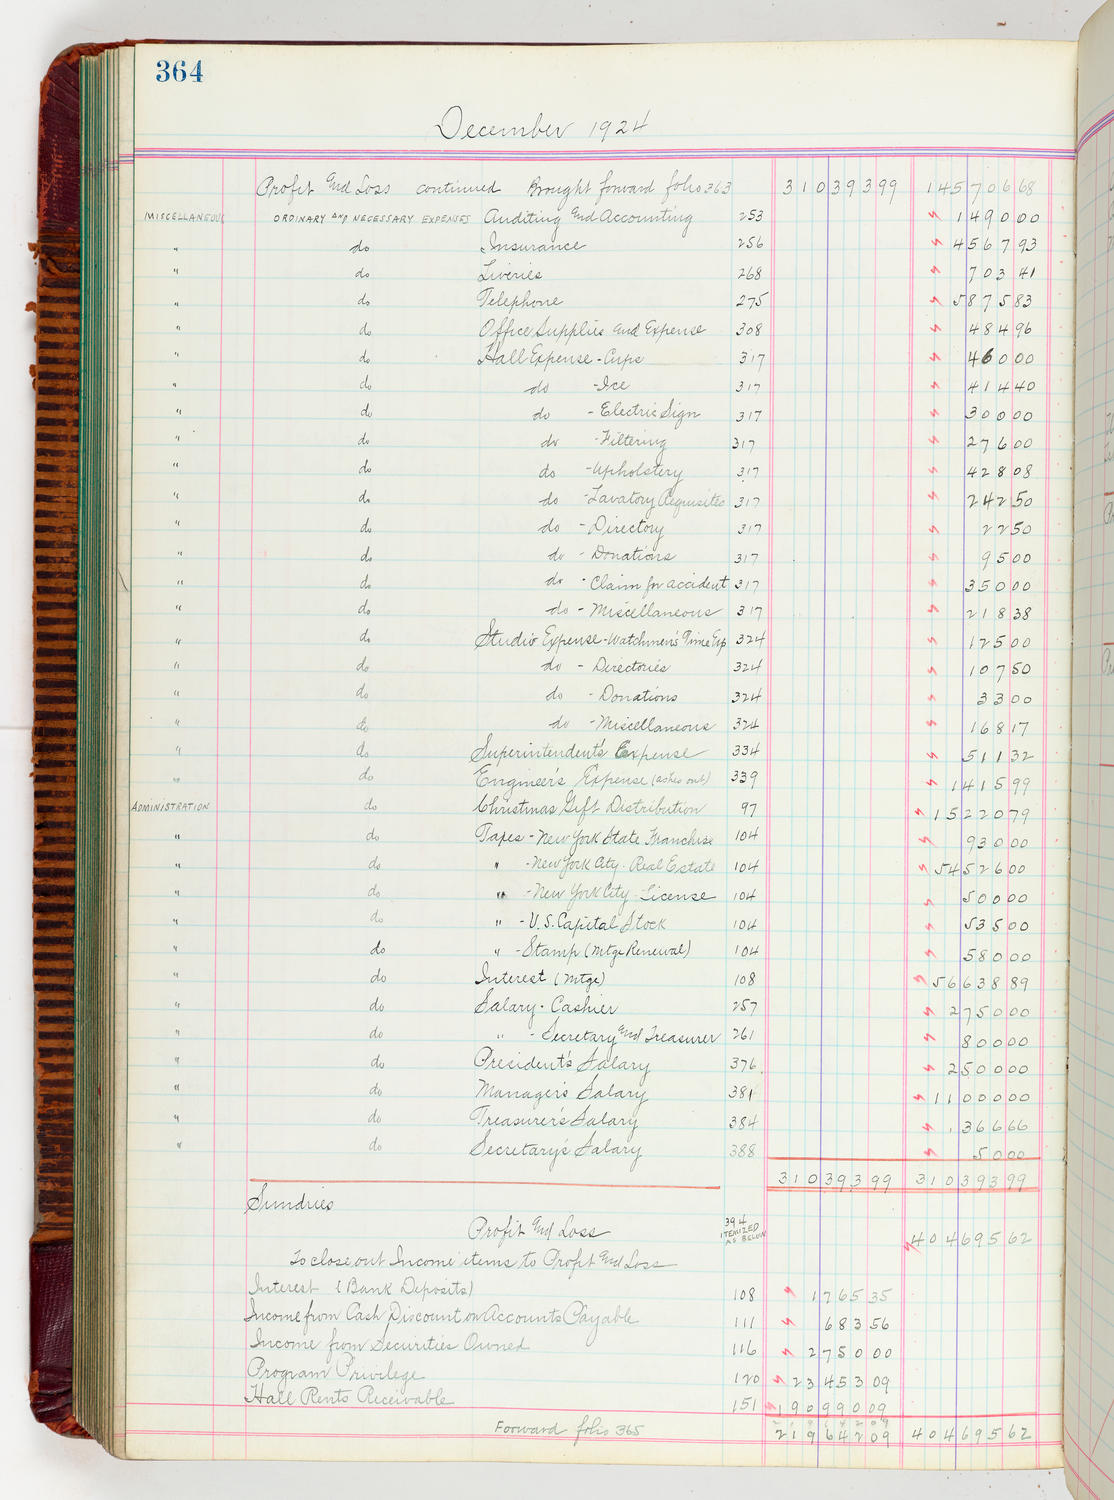 364
December 1924
Profit and Loss continued Brought forward folio 363 310393 99 145706 68
MISCELLANEOUS ORDINARY AND NECESSARY EXPENSES Auditing and Accounting 253 1490 00
" do Insurance 256 4567 93
" do Liveries 268 703 41
" do Telephone 275 5875 83
" do Office Supplies and Expense 308 484 96
" do Hall Expense - Cups 317 460 00
" do do - Ice 317 414 40
" do do - Electric Sign 317 300 00
" do do - Filtering 317 276 00
" do do - Upholstery 317 428 08
" do do - Lavatory Requisites 317 242 50
" do do - Directory 317 22 50
" do do - Donations 317 95 00
" do do - Claim for accident 317 350 00
" do do - Miscellaneous 317 218 38
" do Studio Expense - Watchmen's Time Exp 324 125 00
" do do - Directories 324 107 50
" do do - Donations 324 33 00
" do do - Miscellaneous 324 168 17
" do Superintendent's Expense 334 511 32
" do Engineer's Expense (ashes out) 339 1415 99
ADMINISTRATION do Christmas Gift Distribution 97 15220 79
" do Taxes - New York State Franchise 104 930 00
" do " - New York City - Real Estate 104 54526 00
" do " - New York City - License 104 500 00
" do " - U.S. Capital Stock 104 535 00
" do " - Stamp (Mtge Renewal) 104 580 00
" do Interest (Mtge) 108 56638 89
" do Salary - Cashier 257 2750 00
" do " - Secretary and Treasurer 261 800 00
" do President's Salary 376 2500 00
" do Manager's Salary 381 11000 00
" do Treasurer's Salary 384 366 66
" do Secretary's Salary 388 50 00
310393 99 310393 99
Sundries
Profit and Loss 394 ITEMIZED AS BELOW 404695 62
To close out Income items to Profit and Loss
Interest (Bank Deposits) 108 1765 35
Income from Cash Discount on Accounts Payable 111 683 56
Income from Securities Owned 116 2750 00
Program Privilege 120 23453 09
Hall Rents Receivable 151 190990 09
219642 09
Forward folio 365 219642 09 404695 62